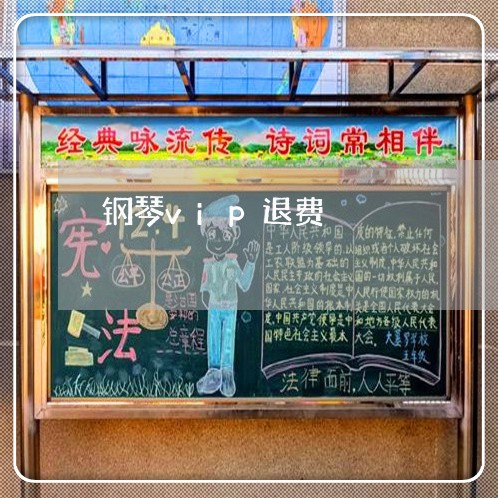 经典咏流传 诗词常相伴
钢琴vip退费
12.4
宪
法
公平 公正
总章程
中华人民共和国
是工人阶级领导的,以
工农联盟为基础的
人民民主专政的社会主义
国家,社会主义制度是中
华人民共和国的根本制
度,中国共产党领导是中
国特色社会主义最本
质的特征,禁止任何
组织或者个人破坏社会
主义制度,中华人民共和
国的一切权利属于人民
人民行使国家权力的机
关是全国人民代表大会
和地方各级人民代表
大会。
五年级
法律面前,人人平等